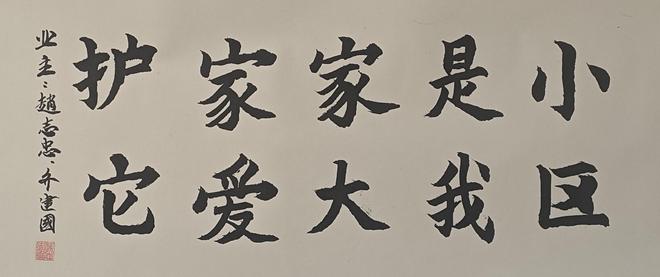 小区
是我
家大
家爱
护它
业主：赵志忠、乔建國